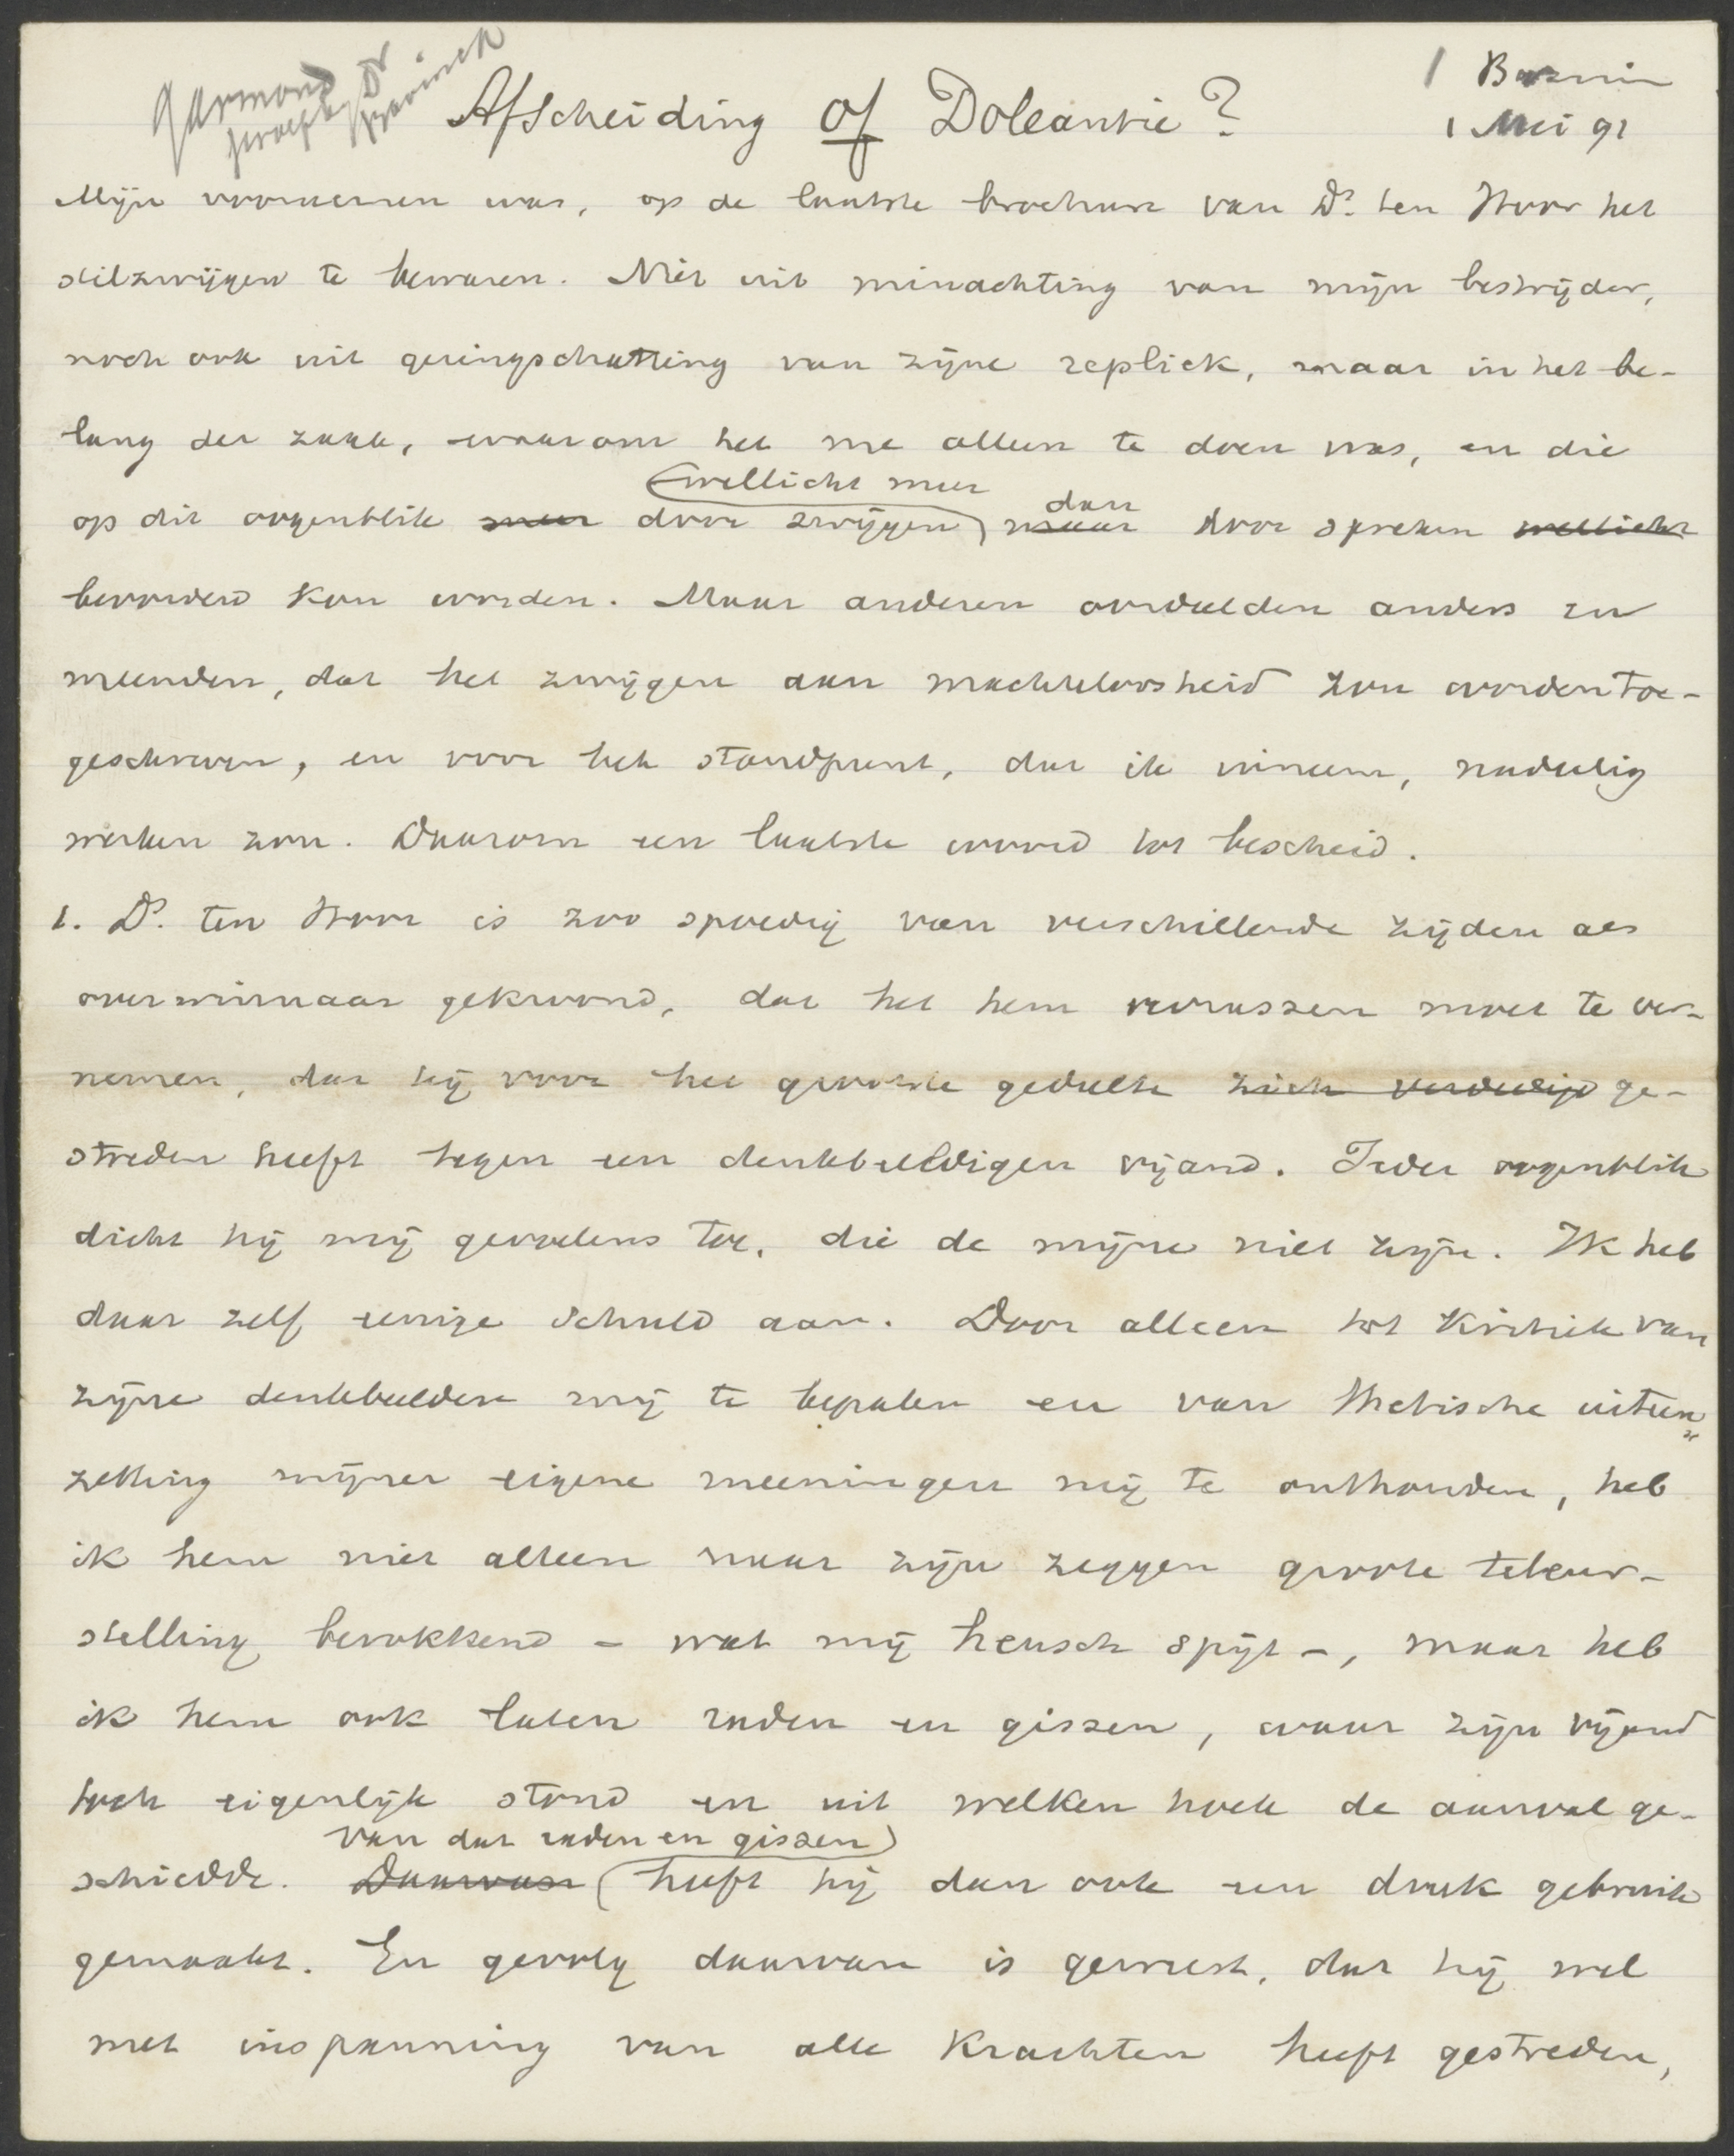 Garmond
proef Dr Bavinck
Afscheiding of Doleantie?
1 Bazuin
1 Mei 91
Mijn voornemen was, op de laatste brochure van Ds. ten Hoor het
stilzwijgen te bewaren. Niet uit minachting van mijn bestrijder,
noch ook uit geringschatting van zijne repliek, maar in het be-
lang der zaak, waarom het me alleen te doen was, en die
wellicht meer dan
op dit oogenblik meer door zwijgen maar door spreken wellicht
bevorderd kon worden. Maar anderen oordeelden anders en
meenden, dat het zwijgen aan machteloosheid zou worden toe-
geschreven, en voor het standpunt, dat ik inneem, nadeelig
werken zou. Daarom een laatste woord tot bescheid.
1. Ds. ten Hoor is zoo spoedig van verschillende zijden als
overwinnaar gekroond, dat het hem verrassen moet te ver-
nemen, dat hij voor het grootste gedeelte zich verdedigd ge-
streden heeft tegen een denkbeeldigen vijand. Ieder oogenblik
dicht hij mij gevoelens toe, die de mijne niet zijn. Ik heb
daar zelf eenige schuld aan. Door alleen tot kritiek van
zijne denkbeelden mij te bepalen en van thetische uiteen
zetting mijner eigene meeningen mij te onthouden, heb
ik hem niet alleen naar zijn zeggen groote teleur-
stelling berokkend – wat mij heusch spijt –, maar heb
ik hem ook laten raden en gissen, waar zijn vijand
toch eigenlijk stond en uit welken hoek de aanval ge-
van dat raden en gissen
schiedde. Daarvan heeft hij dan ook een druk gebruik
gemaakt. En gevolg daarvan is geweest, dat hij wel
met inspanning van alle krachten heeft gestreden,